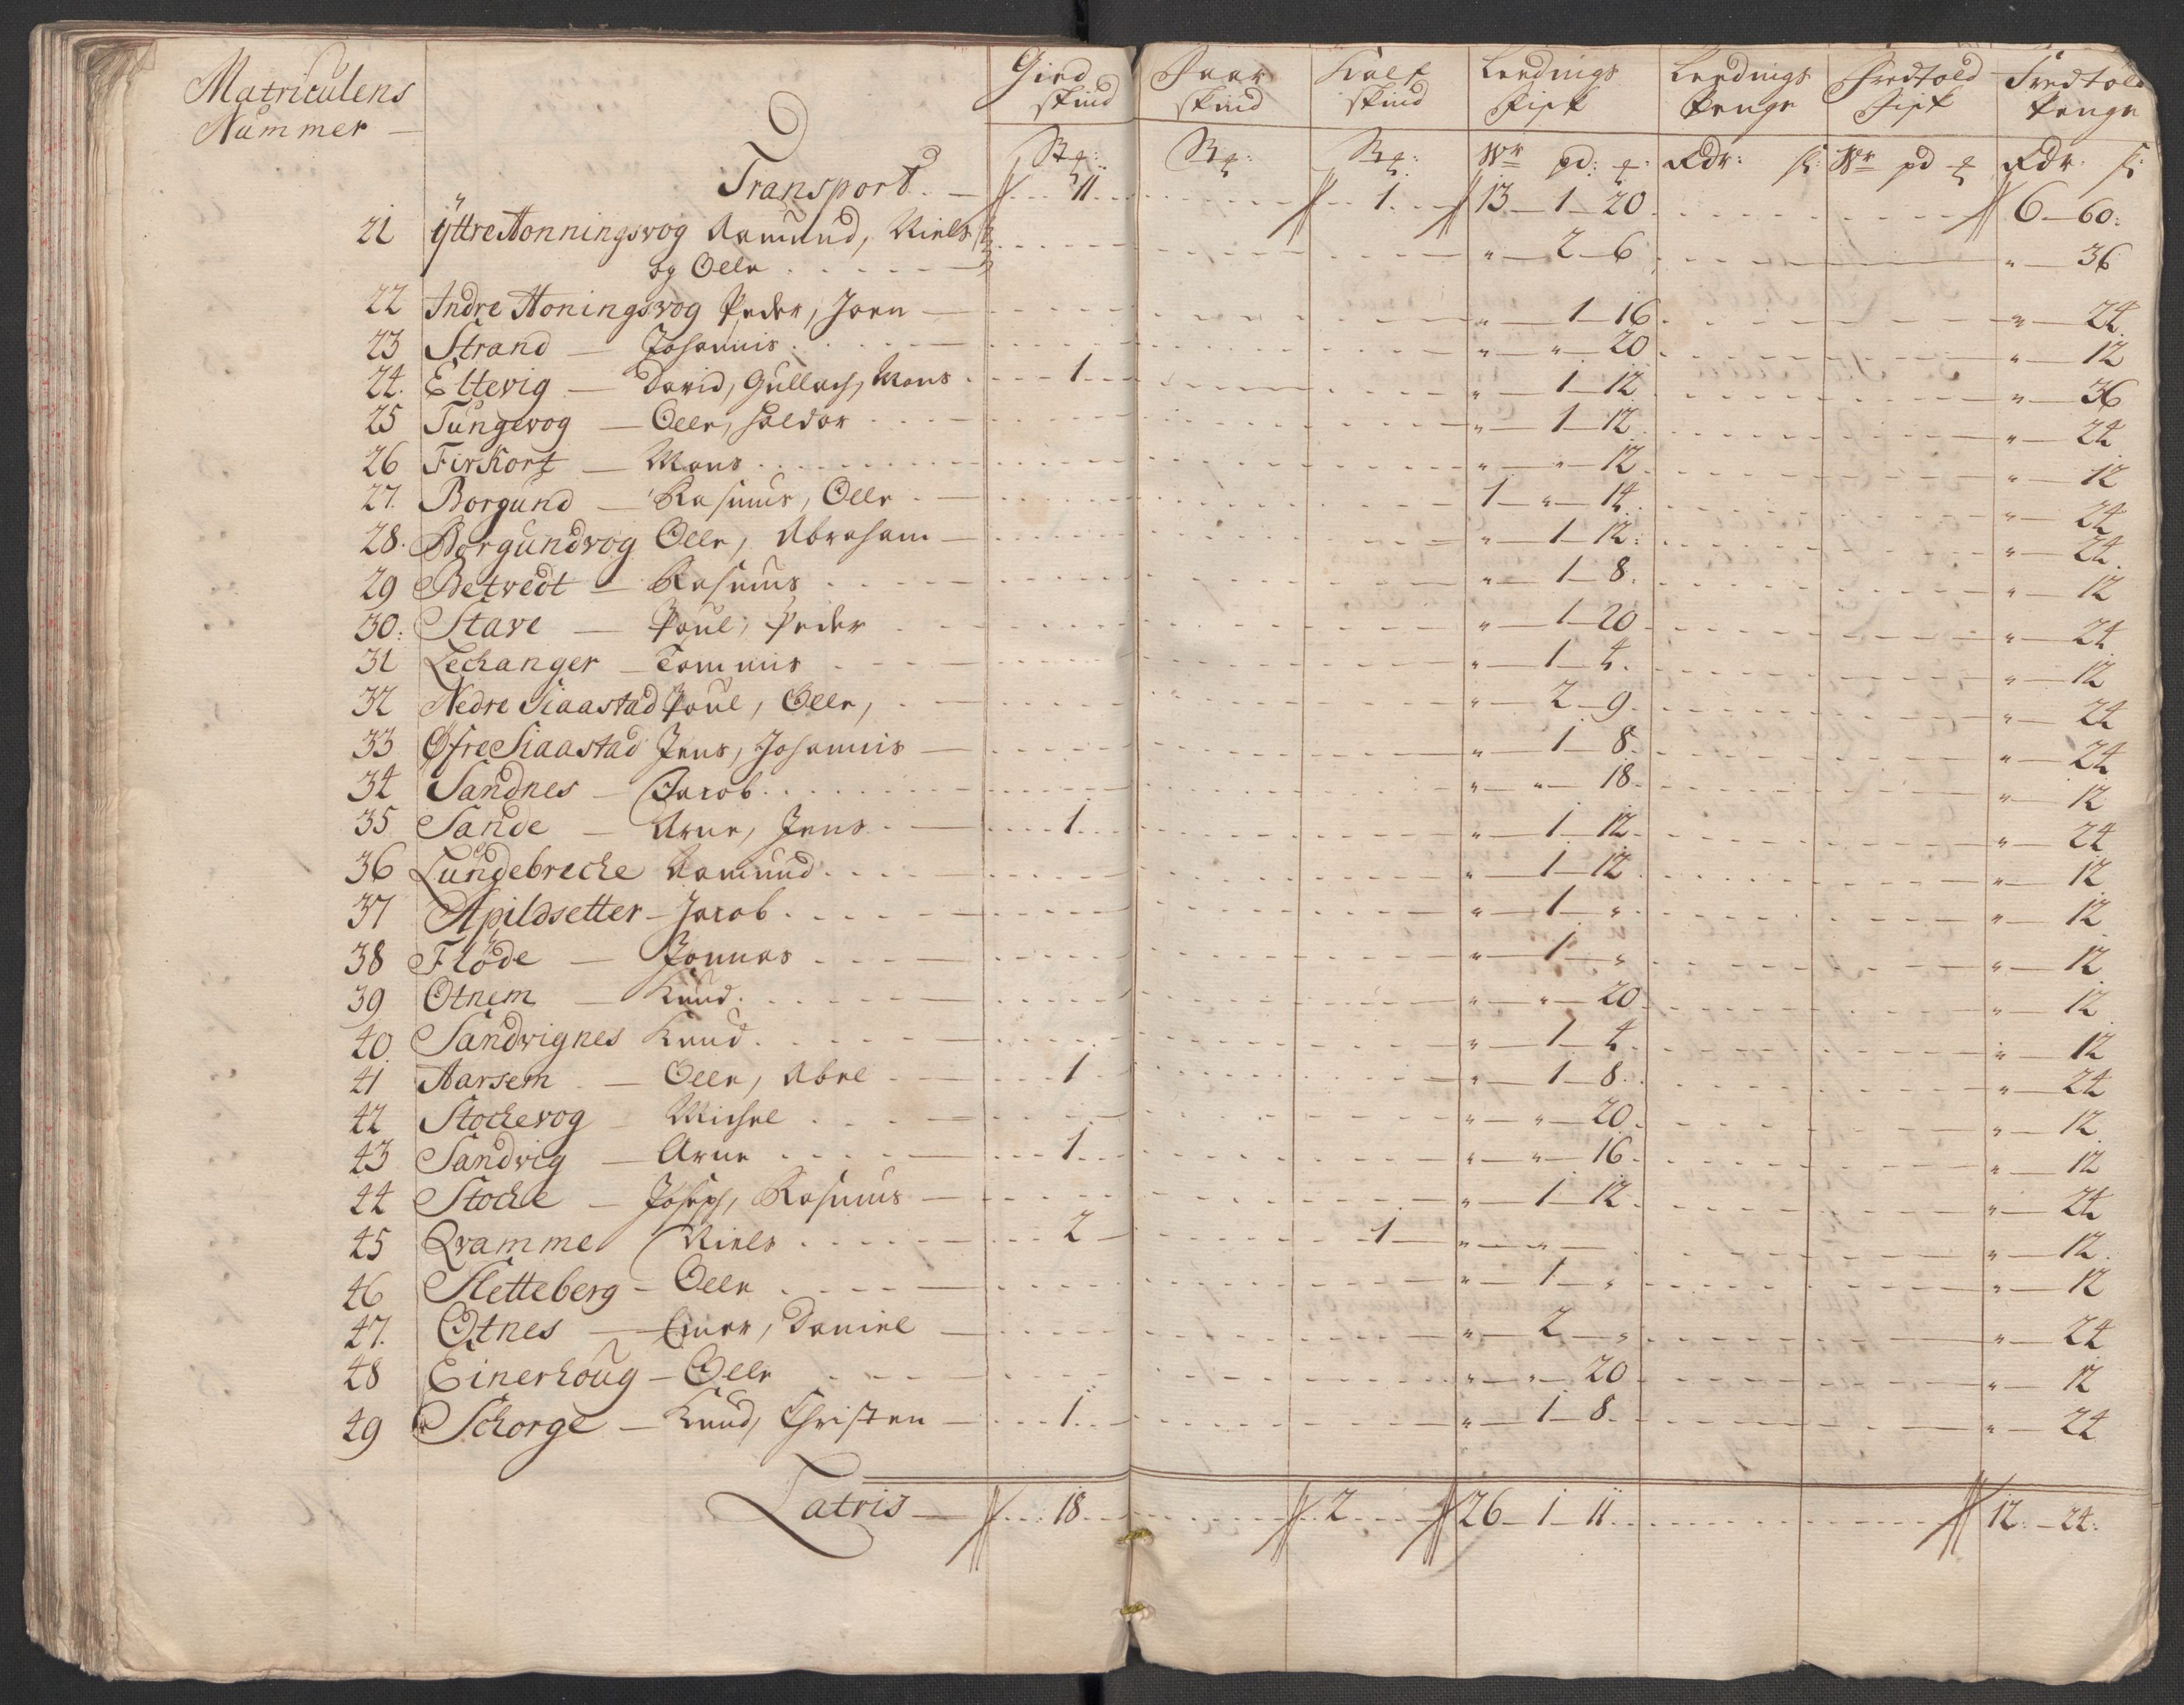 Matriculens Nummer — Gied skind Faar skind Kalf skind Leedings Fisk Leedings Penge Fredtold Fisk Fredtold Penge
Wr pd: Rdr: s: Wr pd Rdr. s:
Transport. — 11 1 13—1—20 6—60:
21 Yttre Honningsvog Aamund, Niels og Oelle „—2—6 „—36
22 Indre Honingsvog Peder, Joen — „—1—16 „—24
23 Strand — Johannis „—„—20 „—12
24. Eltevig — David, Gullach, Mons 1 „—1—12 „—36
25 Tungevog — Oelle, Haldor „—1—12 „—24
26 Firkort — Mons „—„—12 „—12
27. Borgund — Rasmus, Oelle 1—„—14 „—24
28. Borgundvog Oelle, Abraham — „—1—12: „—24
29 Betvedt — Rasmus „—1—8. „—12
30: Stave — Poul, Peder „—1—20 „—24
31 Lechanger — Tommis „—1—4. „—12
32 Nedre Siaastad Poul, Oelle, „—2—9. „—24
33 Øfre Siaastad Jens, Johannis — „—1—8. „—24
34 Sandnes — Jacob „—„—18. „—12
35 Sande — Arne, Jens 1 „—1—12 „—24
36 Lundebreche Aamund „—1—12 „—12
37 Apildsetter — Jacob „—1—„ „—12
38 Flöde — Jonnas „—1—„ „—12
39 Otnem — Knud „—„—20 „—12
40 Sandvignes Knud „—1—4 „—12
41 Aarsem — Oelle, Abel 1 „—1—8 „—24
42 Stochevog Michel „—„—20 „—12
43 Sandvig — Arne 1 „—„—16 „—12
44 Stoche — Joseph, Rasmus — „—1—12 „—24
45 Qvamme Niels 2 1 „—„— „—12
46 Sletteberg — Oelle „—1—„ „—12
47. Otnes — Einer, Daniel „—2—„ „—24
48 Einerhoug — Oelle „—„—20 „—12
49 Schorge — Knud, Christen — 1 „—1—8 „—24
Latris — 18 2 26—1—11 12.—24: